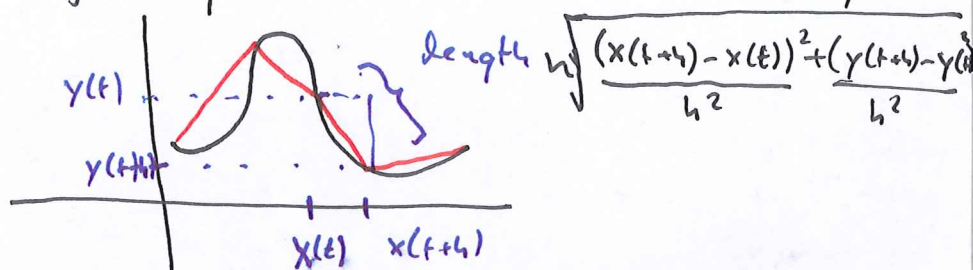 length h√((x(t+h) - x(t))²/h² + (y(t+h) - y(t))²/h²)
y(t)
y(t+h)
x(t) x(t+h)